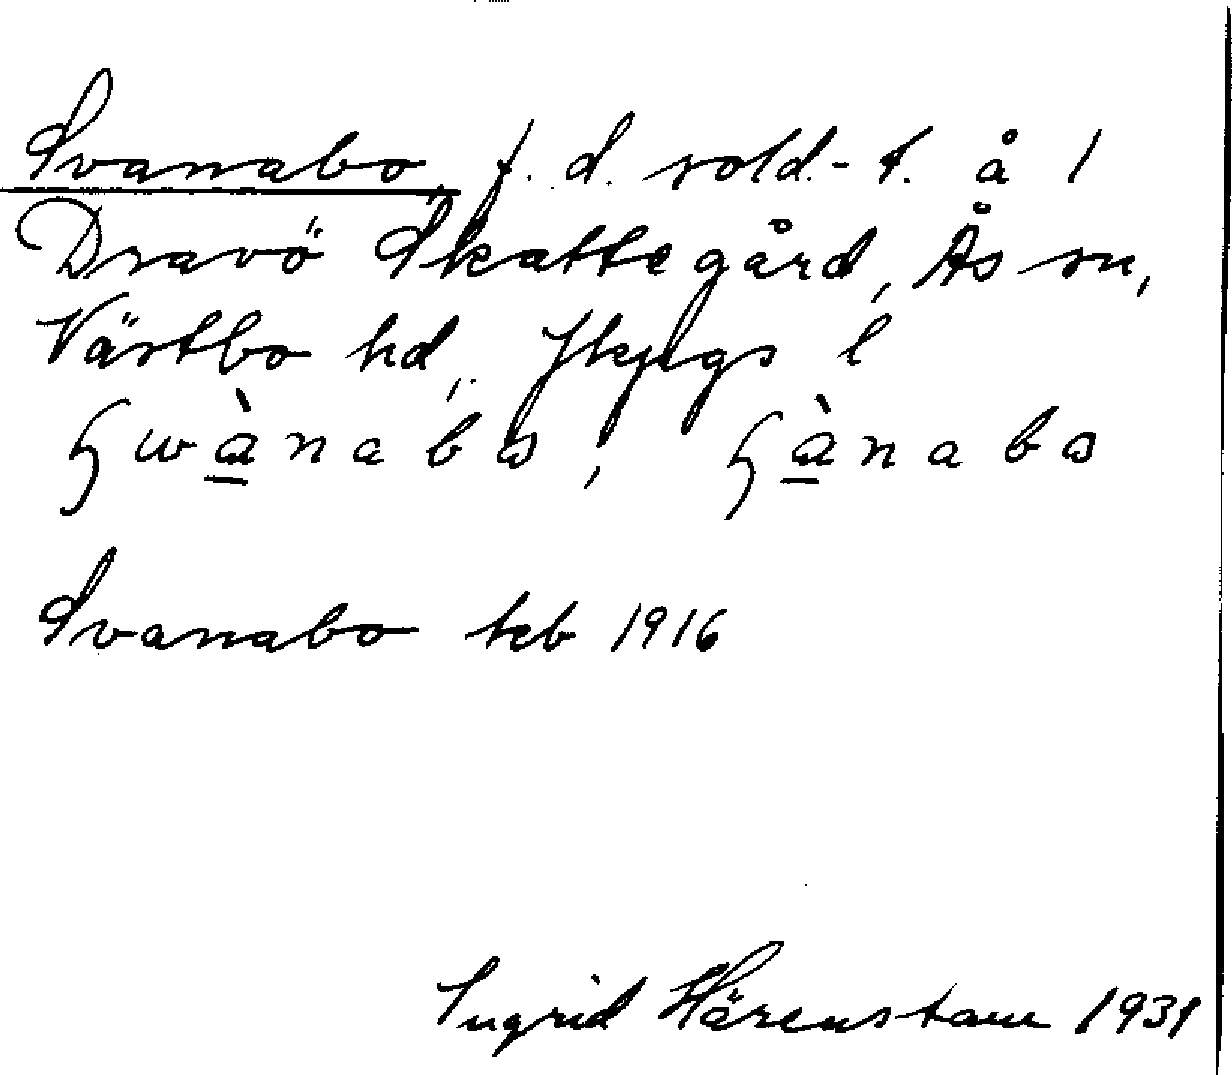 Svanabo, f. d. sold.-t. å 1
Dravö Skattegård, Ås sn,
Västbo hd, Jkpgs l
ɧwànabo, ɧànabo
Svanabo teb 1916
Ingrid Härenstam 1931